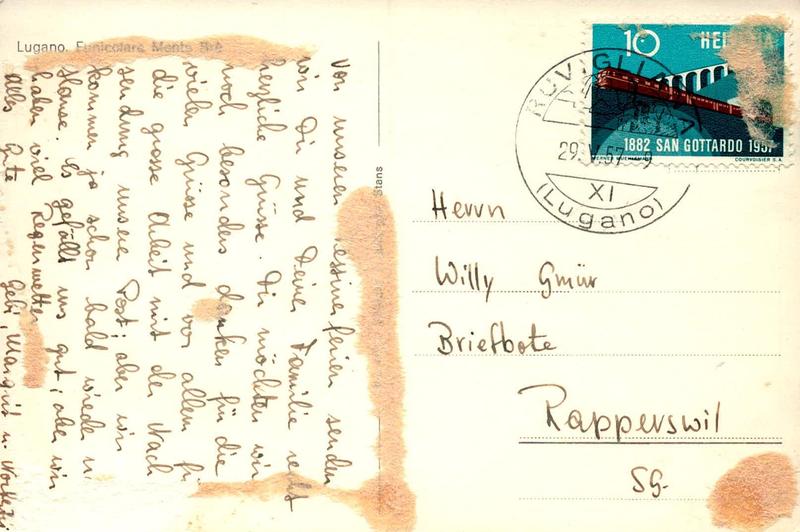 Lugano. Funicolare Monte Brè
Von unseren Tessinerferien senden
wir Dir und Deiner Familie recht
herzliche Grüsse. Dir möchten wir
noch besonders danken für die
vielen Grüsse und vor allem für
die grosse Arbeit mit der Nach
sendung unserer Post; aber wir
kommen ja schon bald wieder n.
Hause. Es gefällt uns gut, aber wir
haben viel Regenwetter.
Alles Gute Margrit u.
10 HELVETIA
1882 SAN GOTTARDO 1957
COURVOISIER S.A.
RUVIGLIANA
29.V.57.
XI
(Lugano)
Stans
Herrn
Willy Gmür
Briefbote
Rapperswil
SG.